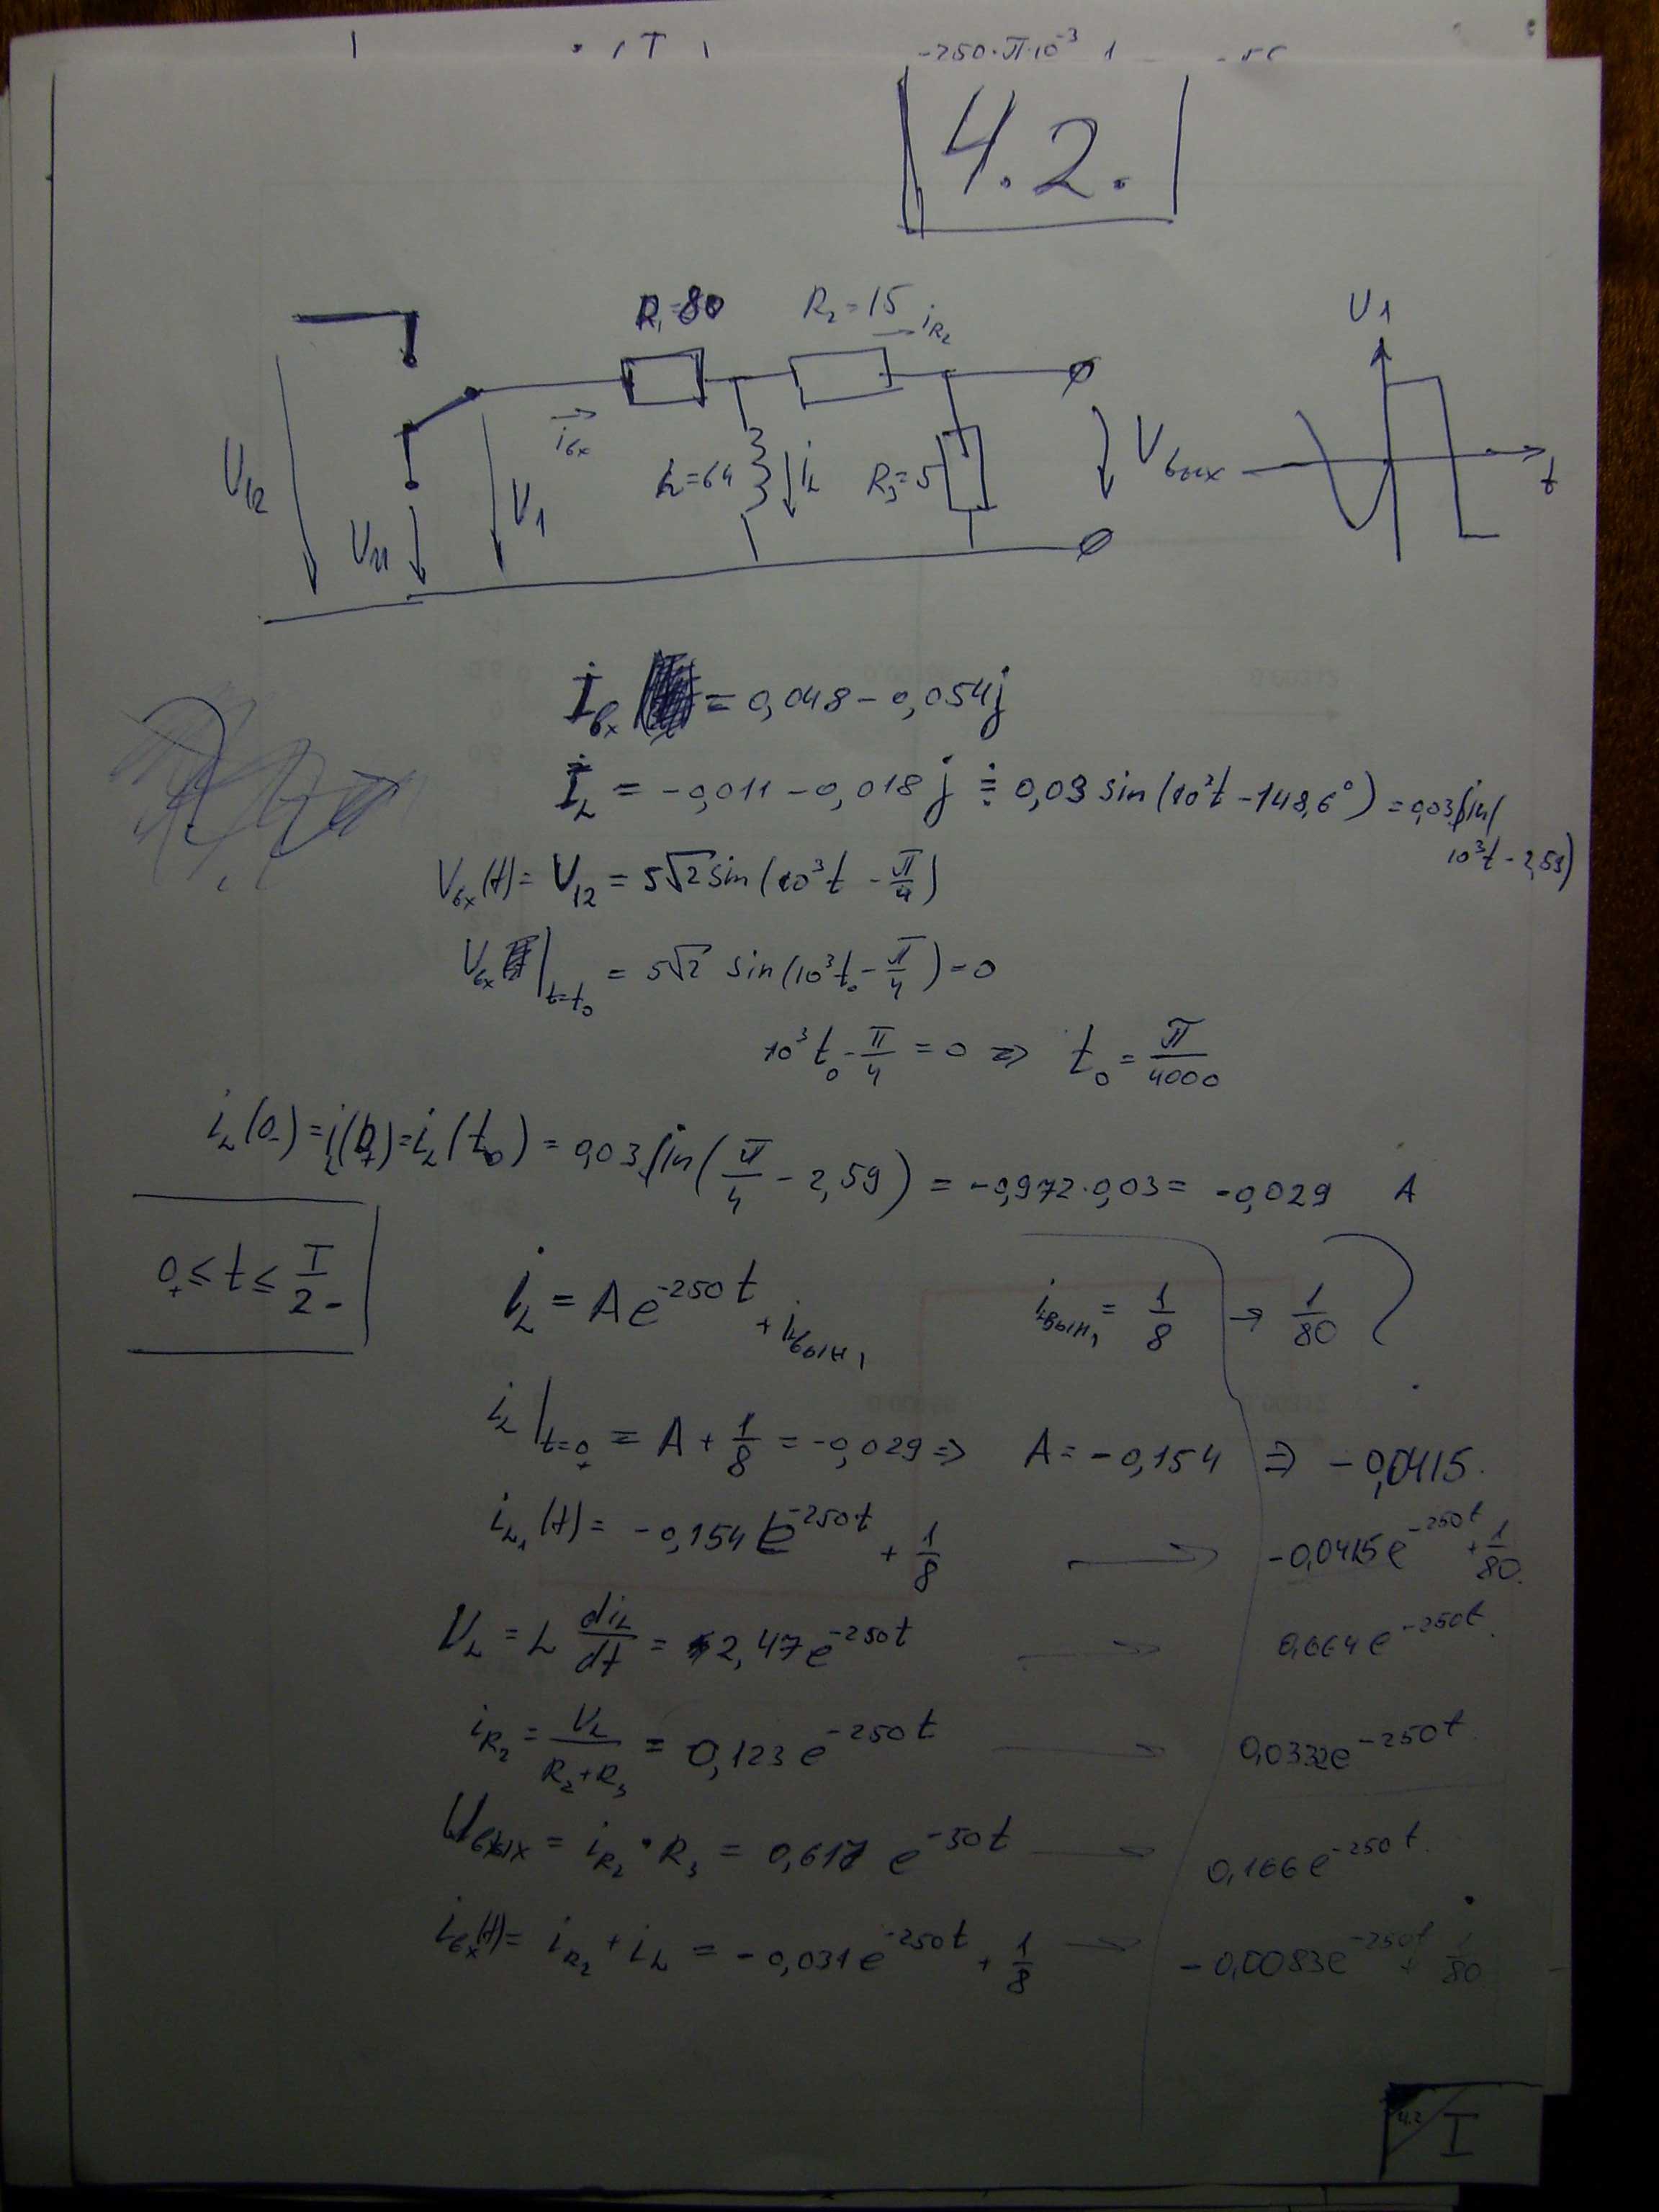 -250·π·10⁻³ 1
4.2.
R₁=80 R₂=15 i_R₂
U₁
U₁₂ U₁₁ U₁ i_вх L=64 i_L R₃=5 U_вых t
İ_вх = 0,048 - 0,054j
İ_L = -0,011 - 0,018j ≑ 0,03 sin(10³t - 148,6°) = 0,03 sin(
10³t - 2,59)
U_вх(t) = U₁₂ = 5√2 sin(10³t - π/4)
U_вх|t=t₀ = 5√2 sin(10³t₀ - π/4) = 0
10³t₀ - π/4 = 0 ⇒ t₀ = π/4000
i_L(0₋) = i_L(0₊) = i_L(t₀) = 0,03 sin(π/4 - 2,59) = -0,972·0,03 = -0,029 A
0₊ ≤ t ≤ T/2₋
i_L = Ae^(-250t) + i_Lвын₁ i_Lвын₁ = 1/8 → 1/80
i_L|t=0₊ = A + 1/8 = -0,029 ⇒ A = -0,154 ⇒ -0,0415
i_L₁(t) = -0,154 e^(-250t) + 1/8 → -0,0415e^(-250t) + 1/80
U_L = L di_L/dt = 2,47e^(-250t) → 0,664e^(-250t)
i_R₂ = U_L/(R₂+R₃) = 0,123e^(-250t) → 0,0332e^(-250t)
U_вых = i_R₂·R₃ = 0,617 e^(-50t) → 0,166e^(-250t)
i_вх(t) = i_R₂ + i_L = -0,031e^(-250t) + 1/8 → -0,0083e^(-250t) + 1/80
4.2 I